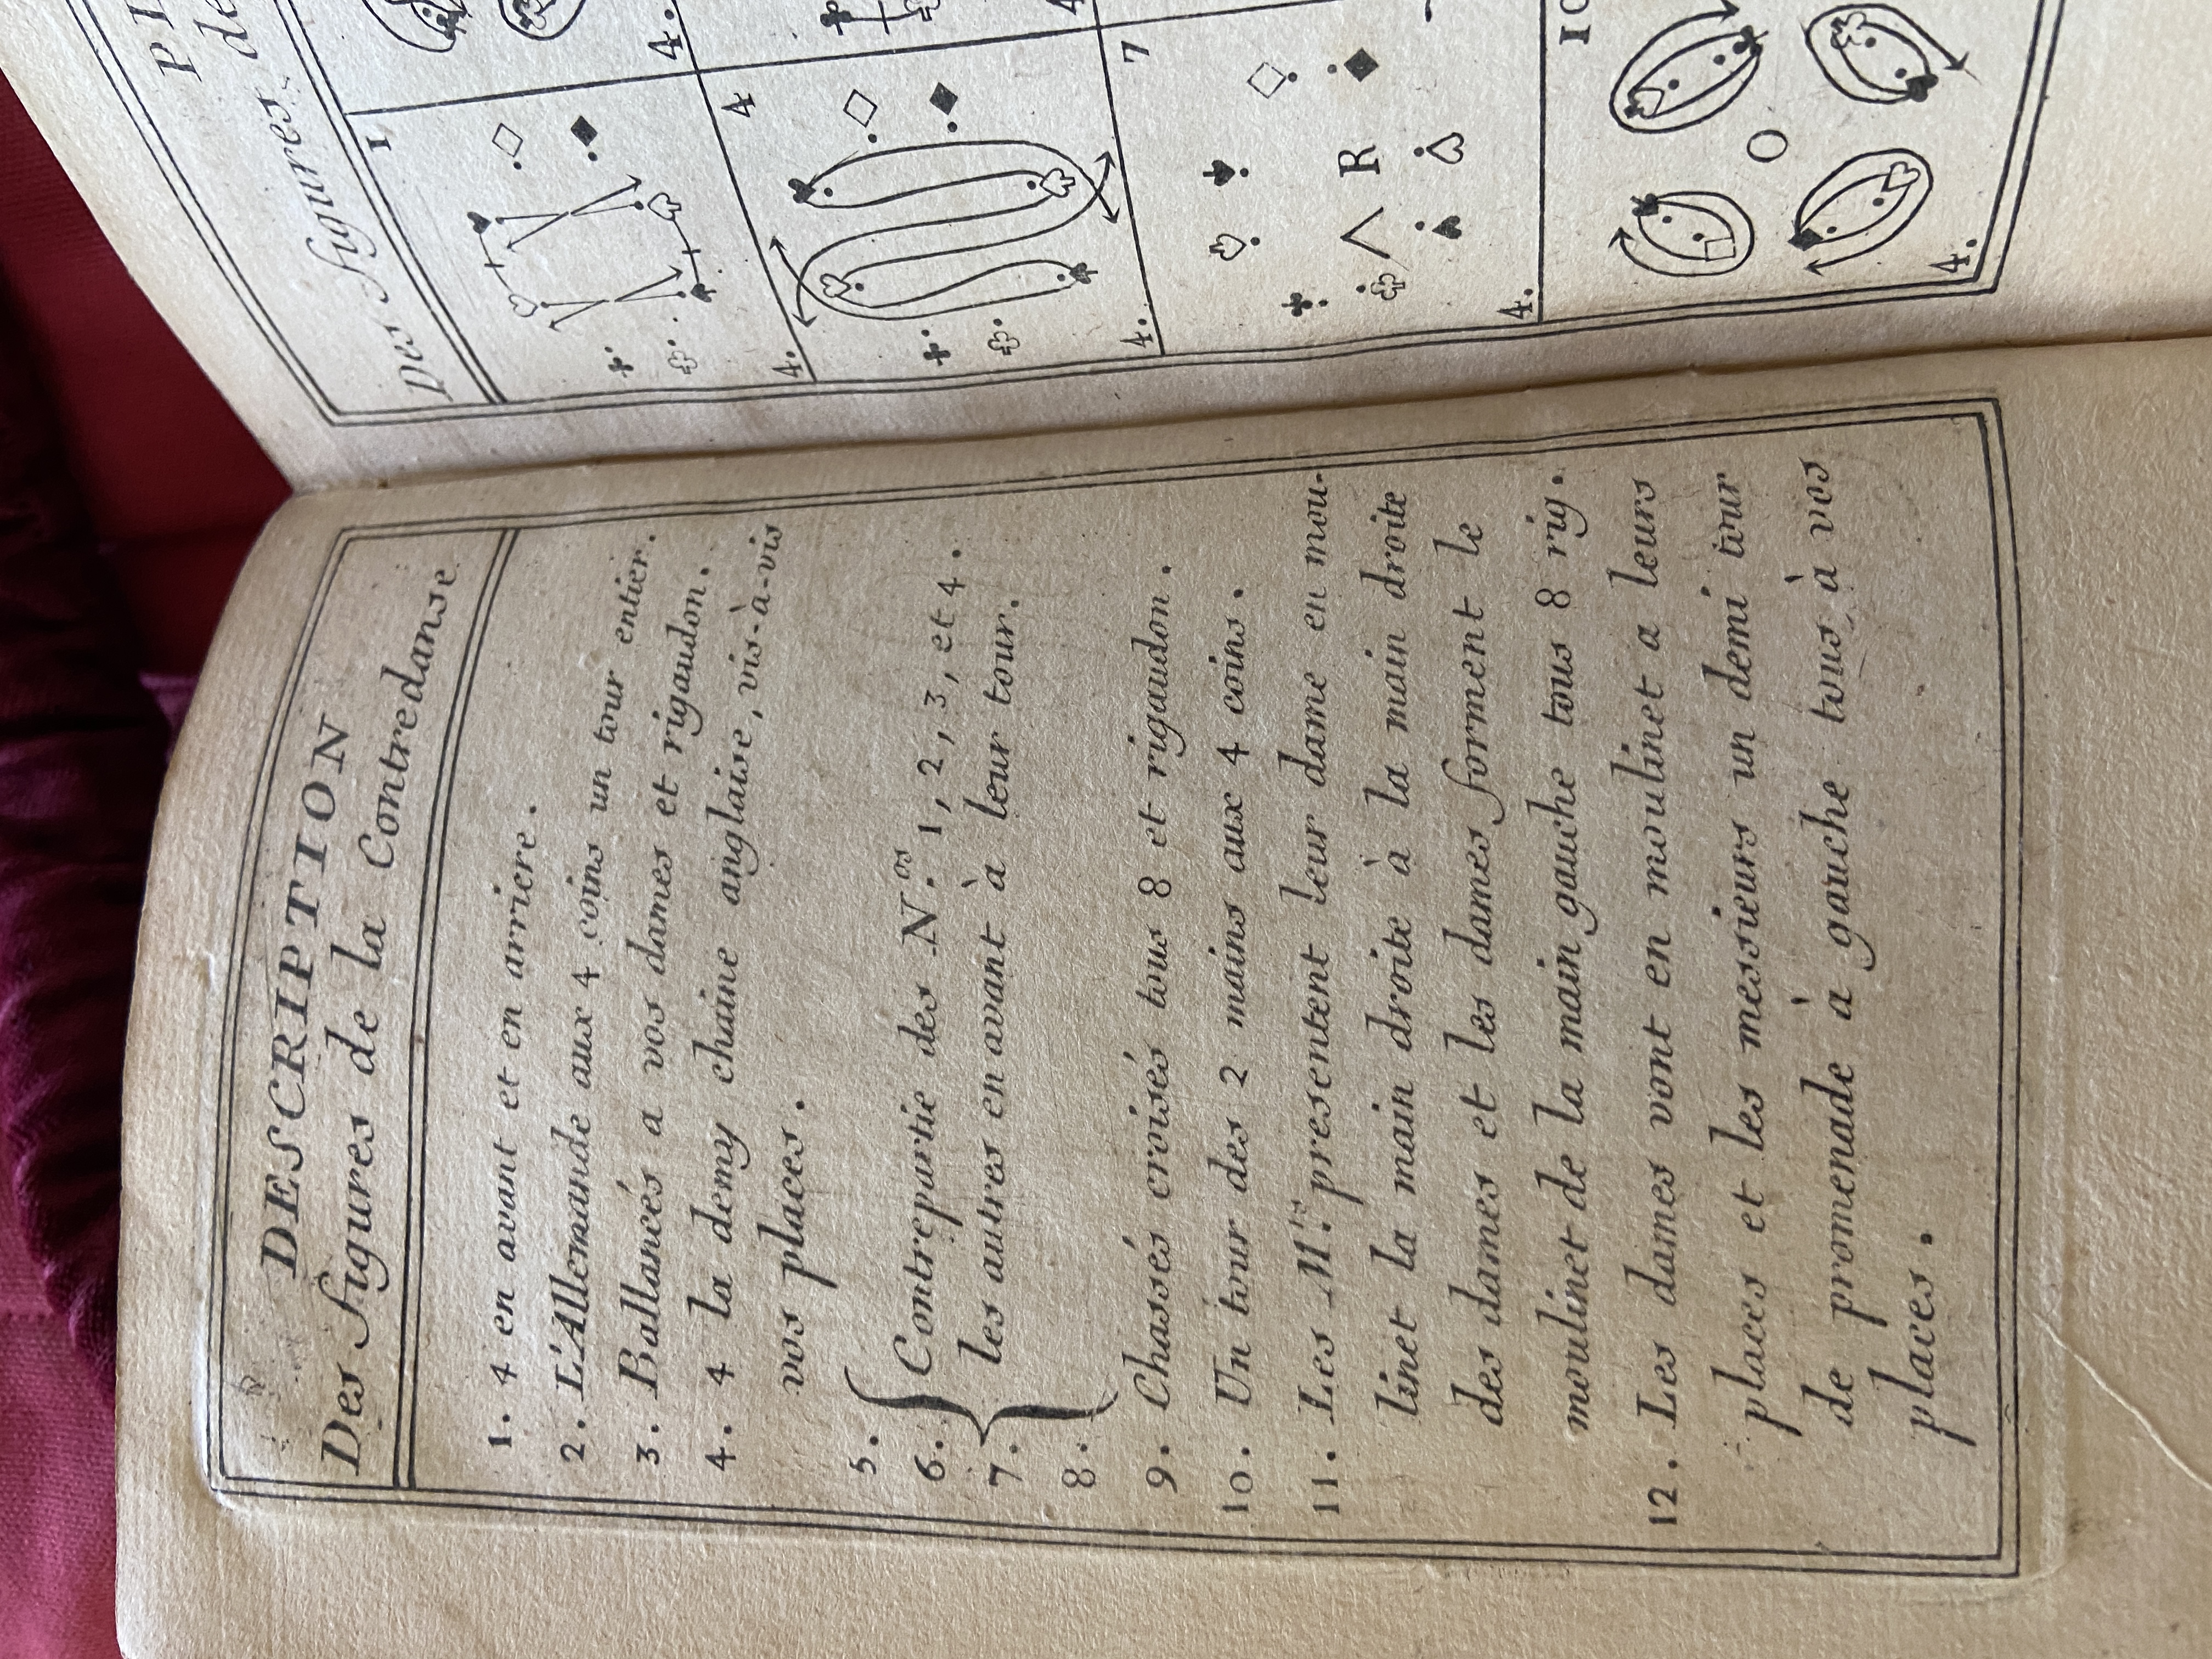 DESCRIPTION
Des figures de la Contredanse
1. 4 en avant et en arriere.
2. L'Allemande aux 4 coins un tour entier.
3. Ballancés a vos dames et rigaudon.
4. 4 la demy chaine anglaise, vis-à-vis
vos places.
5.
6. Contrepartie des N.os 1, 2, 3, et 4.
7. les autres en avant à leur tour.
8.
9. Chassés croisés tous 8 et rigaudon.
10. Un tour des 2 mains aux 4 coins.
11. Les M.rs presentent leur dame en mou-
linet la main droite à la main droite
des dames et les dames forment le
moulinet de la main gauche tous 8 rig.
12. Les dames vont en moulinet a leurs
places et les messieurs un demi tour
de promenade à gauche tous à vos
places.
Des figures de
1
4.
4
4.
7
R
4.
10
4.